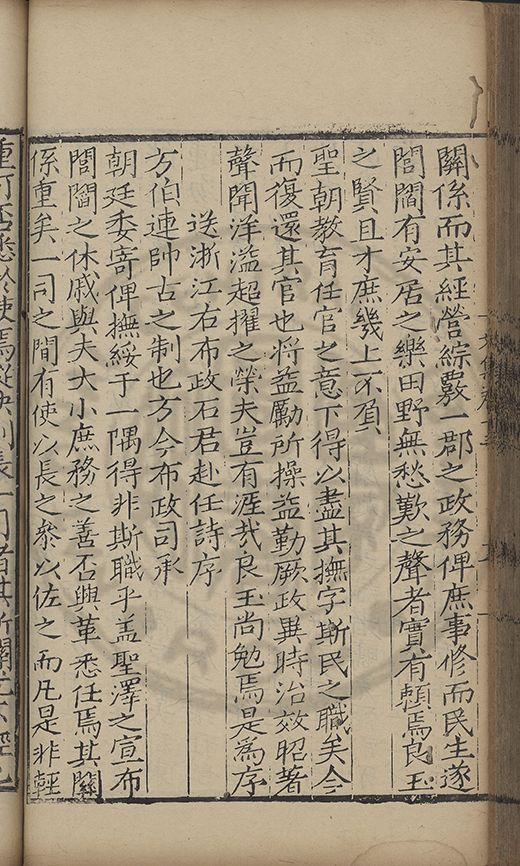 關係而其經營綜覈一郡之政務俾庶事修而民生遂
閭閻有安居之樂田野無愁歎之聲者實有賴焉良玉
之賢且才庶幾上不負
聖朝教育任官之意下得以盡其撫字斯民之職矣今
而復還其官也將益勵所操益勤厥政異時治效昭著
聲聞洋溢超擢之榮夫豈有涯哉良玉尚勉焉是為序
送浙江右布政石君赴任詩序
方伯連帥古之制也方今布政司承
朝廷委寄俾撫綏于一隅得非斯職乎盖聖澤之宣布
閭閻之休戚與夫大小庶務之善否興革悉任焉其關
係重矣一司之間有使以長之參以佐之而凡是非輕